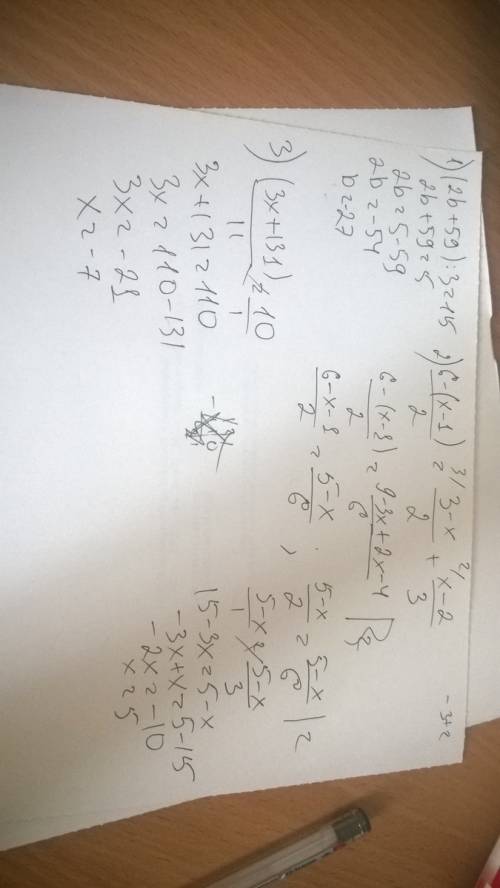 1) (2b+59):3=15
2b+59=5
2b=5-59
2b=-54
b=-27
2) 6-(x-1)/2 = 3/ 3-x/2 + 2/ x-2/3
6-(x-1)/2 = 9-3x+2x-4/6
6-x-1/2 = 5-x/6 ; 5-x/2 = 5-x/6 | 2
5-x/1 = 5-x/3
15-3x=5-x
-3x+x=5-15
-2x=-10
x=5
3) (3x+131)/11 = 10/1
3x+131=110
3x=110-131
3x=-21
x=-7
-3+2